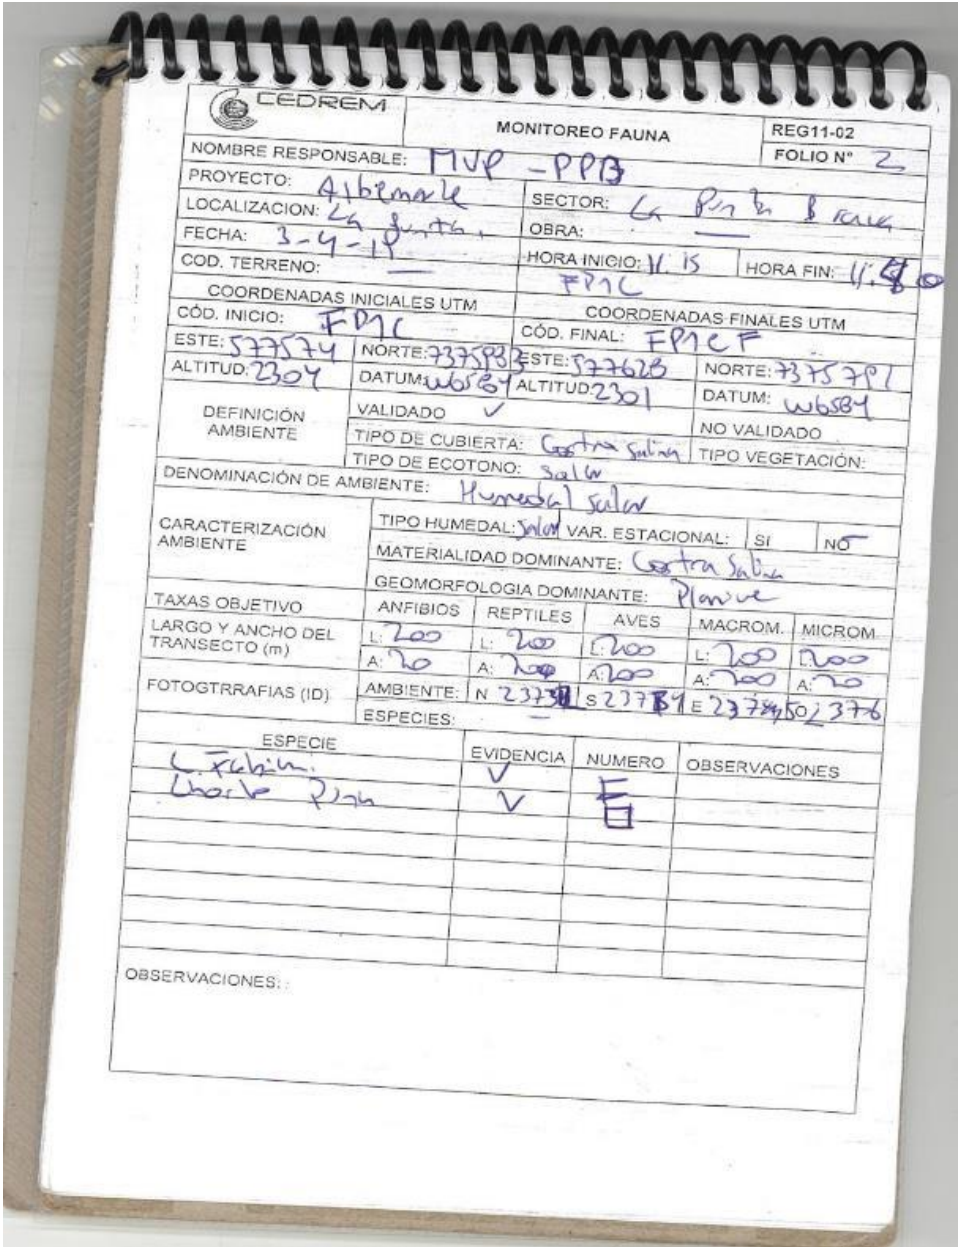 CEDREM
MONITOREO FAUNA
REG11-02
FOLIO N° 2
NOMBRE RESPONSABLE: MVP - PPB
PROYECTO: Albemarle
SECTOR: La Punta Brava
LOCALIZACION: La Punta
OBRA: —
FECHA: 3-4-19
HORA INICIO: 11.15
HORA FIN:
COD. TERRENO: —
FP1C
COORDENADAS INICIALES UTM
COORDENADAS FINALES UTM
CÓD. INICIO: FP1C
CÓD. FINAL: FP1CF
ESTE: 577574
NORTE: 7375933
ESTE: 577628
NORTE: 7375791
ALTITUD: 2304
DATUM: WGS84
ALTITUD: 2301
DATUM: WGS84
DEFINICIÓN AMBIENTE
VALIDADO ✓
NO VALIDADO
TIPO DE CUBIERTA: Costra Salina
TIPO VEGETACIÓN:
TIPO DE ECOTONO: Salar
DENOMINACIÓN DE AMBIENTE: Humedal salar
CARACTERIZACIÓN AMBIENTE
TIPO HUMEDAL: Salar
VAR. ESTACIONAL: SI NO
MATERIALIDAD DOMINANTE: Costra Salina
GEOMORFOLOGIA DOMINANTE: Planicie
TAXAS OBJETIVO
ANFIBIOS REPTILES AVES MACROM. MICROM.
LARGO Y ANCHO DEL TRANSECTO (m)
L: 200 L: 200 L: 200 L: 200 L: 200
A: 20 A: A: 200 A: 200 A: 20
FOTOGTRRAFIAS (ID)
AMBIENTE: N S E SO
ESPECIES: —
ESPECIE EVIDENCIA NUMERO OBSERVACIONES
L. Fabiani. V
V
OBSERVACIONES: